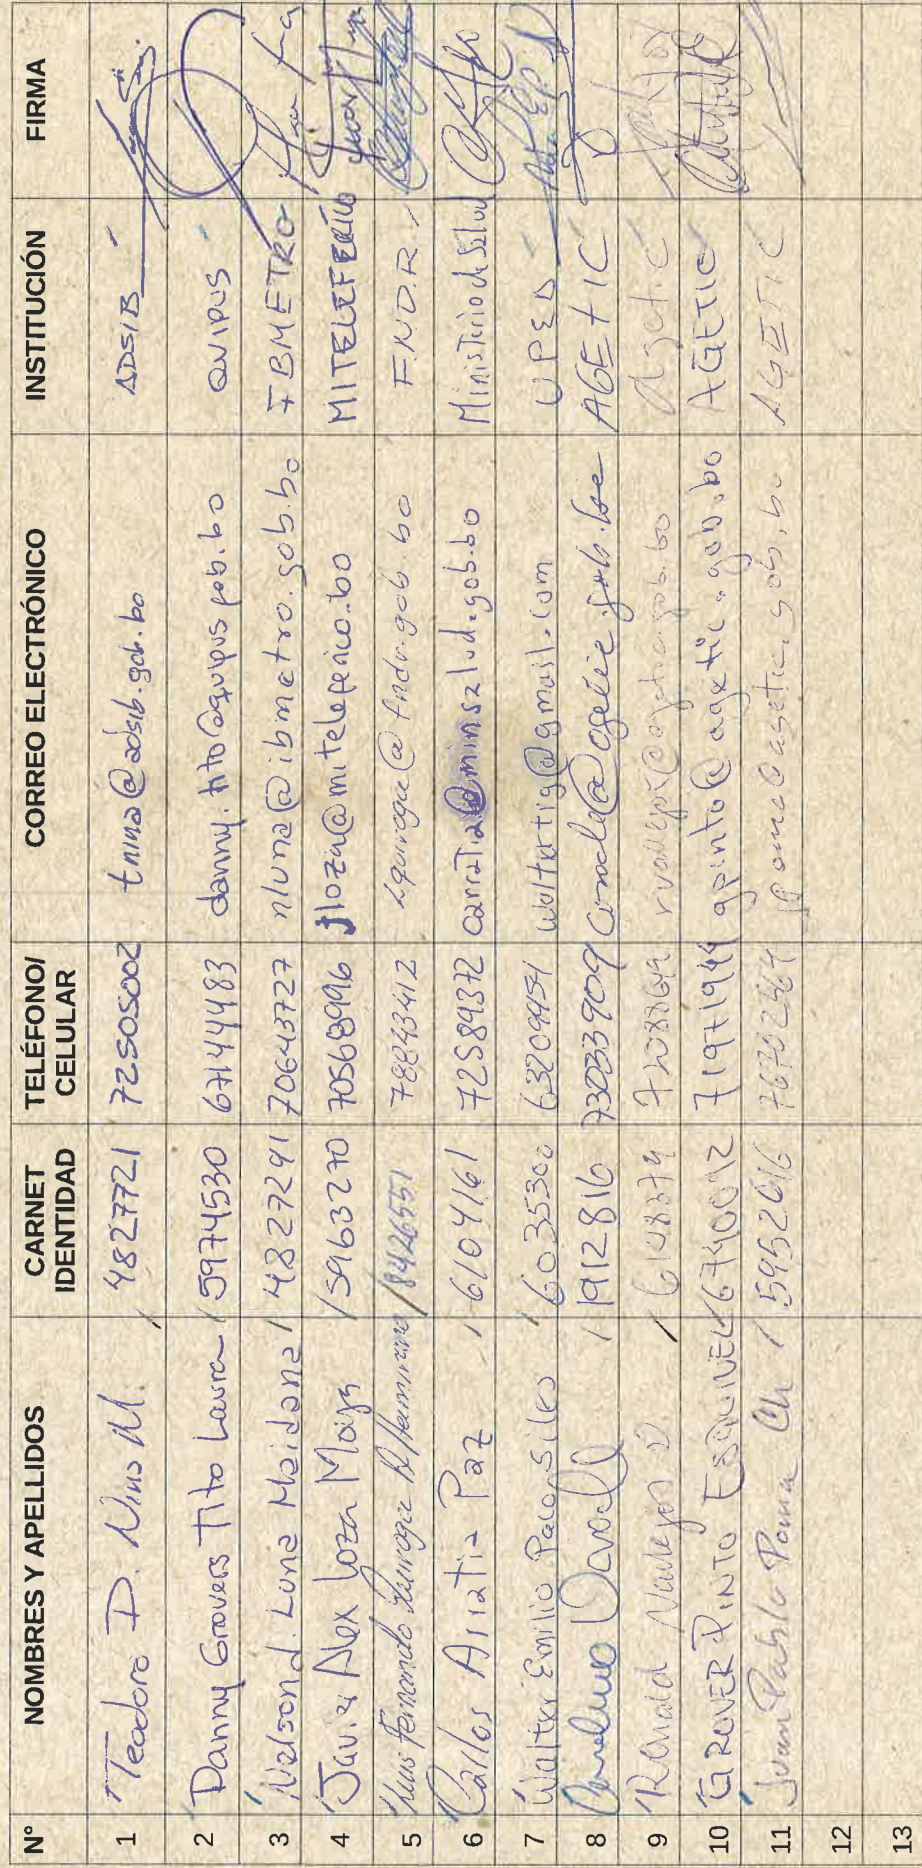 N° NOMBRES Y APELLIDOS CARNET IDENTIDAD TELÉFONO/ CELULAR CORREO ELECTRÓNICO INSTITUCIÓN FIRMA
1 Teodoro D. Nina M. 4827721 72505002 tnina@adsib.gob.bo ADSIB
2 Danny Grovers Tito Laura 5974530 67144483 danny.tito@quipus.gob.bo QUIPUS
3 Nelson J. Luna Maidana 4827291 70643727 nluna@ibmetro.gob.bo IBMETRO
4 Javier Alex Loza Mayta 5963270 70568996 jloza@miteleferico.bo MITELEFERICO
5 Luis Fernando Quiroga Altamirano 8426551 78843412 lquiroga@fndr.gob.bo F.N.D.R.
6 Carlos Arratia Paz 6104161 72589372 carratia@minsalud.gob.bo Ministerio de Salud
7 Walter Emilio Paco Siles 6035300 63209454 waltertig@gmail.com UPED
8 1912816 73033909 AGETIC
9 Ronald agetic
10 GROVER PINTO ESQUIVEL 6740012 71971944 gpinto@agetic.gob.bo AGETIC
11 Juan Pablo Poma Ch 5952016 ppoma@agetic.gob.bo AGETIC
12
13